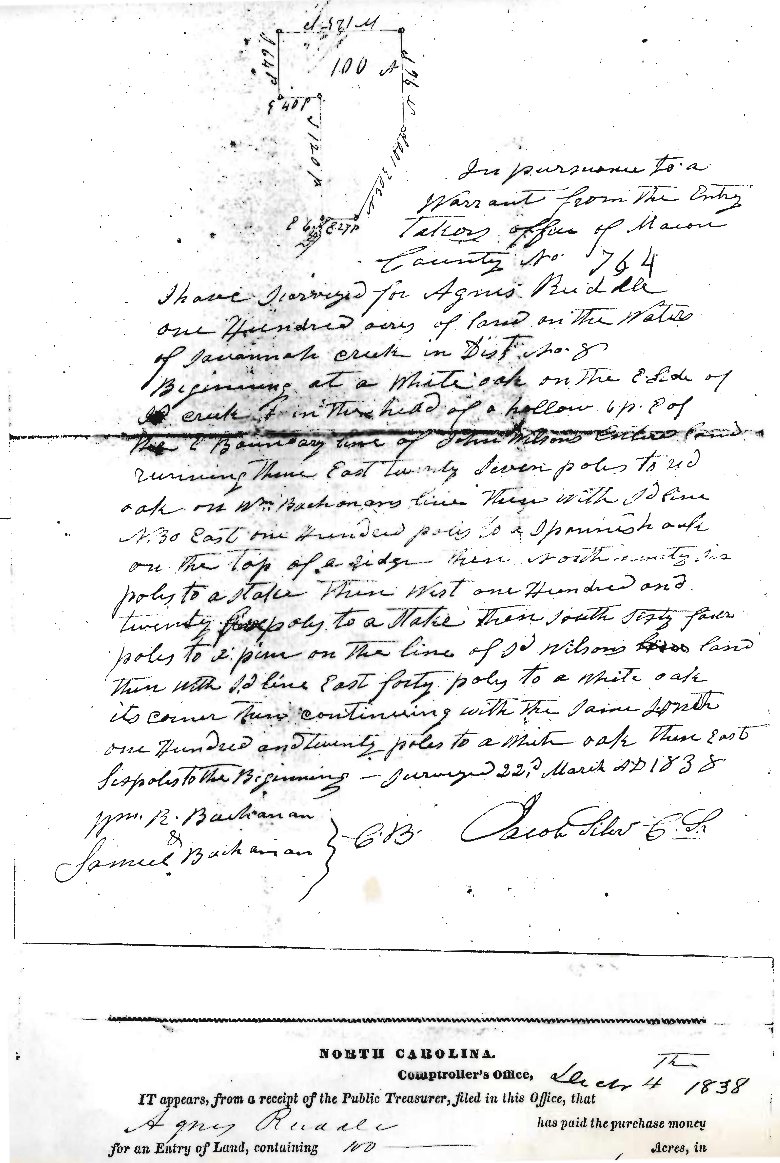 W 125 P
S 64 P
100 A
N 96 P
E 40 P
S 120 P
N 30 E 100 P
E 6 P
E 27 P
In pursuance to a
Warrant from the Entry
Takers office of Macon
County No 764
I have Surveyed for Agnes Ruddle
one Hundred acres of land on the Waters
of Savannah creek in Dist No. 8
Beginning at a White oak on the E Side of
Sd creek & in the head of a hollow 6 p. E of
the E Boundary line of John Wilsons Entered land
running thence East twenty Seven poles to rd
oak on Wm Buchanans line then with Sd line
N 30 East one Hundred poles to a Spannish oak
on the top of a ridge then North ninty six
poles to a stake Then West one Hundred and
twenty five poles to a Stake then South Sixty four
poles to a pine on the line of Sd Wilsons land
then with Sd line East forty poles to a white oak
its corner then continuing with the same South
one Hundred and twenty poles to a White oak then East
Six poles to the Beginning — Surveyed 22d March AD 1838
Wm. R. Buchanan
& C. B. Jacob Siler C. S.
Samuel Buchanan
NORTH CAROLINA.
Comptroller's Office, Decr 4th 1838
IT appears, from a receipt of the Public Treasurer, filed in this Office, that
Agnes Ruddle has paid the purchase money
for an Entry of Land, containing 100 Acres, in